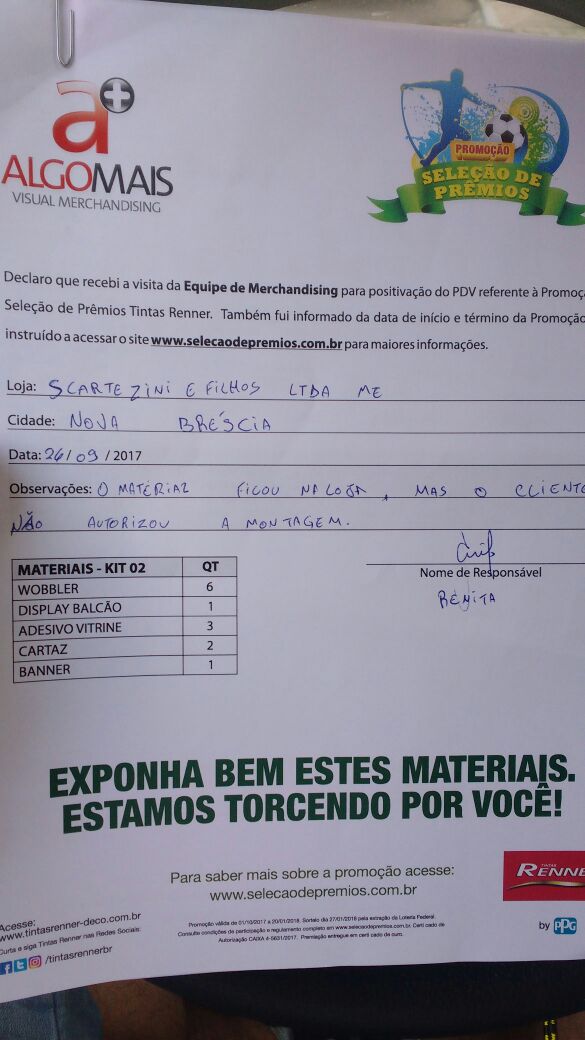 a+
ALGOMAIS
VISUAL MERCHANDISING
PROMOÇÃO
SELEÇÃO DE
PRÊMIOS
Declaro que recebi a visita da Equipe de Merchandising para positivação do PDV referente à Promoç
Seleção de Prêmios Tintas Renner. Também fui informado da data de início e término da Promoção
instruído a acessar o site www.selecaodepremios.com.br para maiores informações.
Loja: SCARTEZINI E FILHOS LTDA ME
Cidade: NOVA BRÉSCIA
Data: 26/09/2017
Observações: O MATERIAL FICOU NA LOJA, MAS O CLIENTE
NÃO AUTORIZOU A MONTAGEM.
MATERIAIS - KIT 02 QT
WOBBLER 6
DISPLAY BALCÃO 1
ADESIVO VITRINE 3
CARTAZ 2
BANNER 1
Nome de Responsável
BENITA
EXPONHA BEM ESTES MATERIAIS.
ESTAMOS TORCENDO POR VOCÊ!
Para saber mais sobre a promoção acesse:
www.selecaodepremios.com.br
TINTAS
RENNE
Acesse:
www.tintasrenner-deco.com.br
Curta e siga Tintas Renner nas Redes Sociais:
/tintasrennerbr
Promoção válida de 01/10/2017 a 20/01/2018. Sorteio dia 27/01/2018 pela extração da Loteria Federal.
Consulte condições de participação e regulamento completo em www.selecaodepremios.com.br. Certificado de
Autorização CAIXA 4-5631/2017. Premiação entregue em certificado de ouro.
by PPG